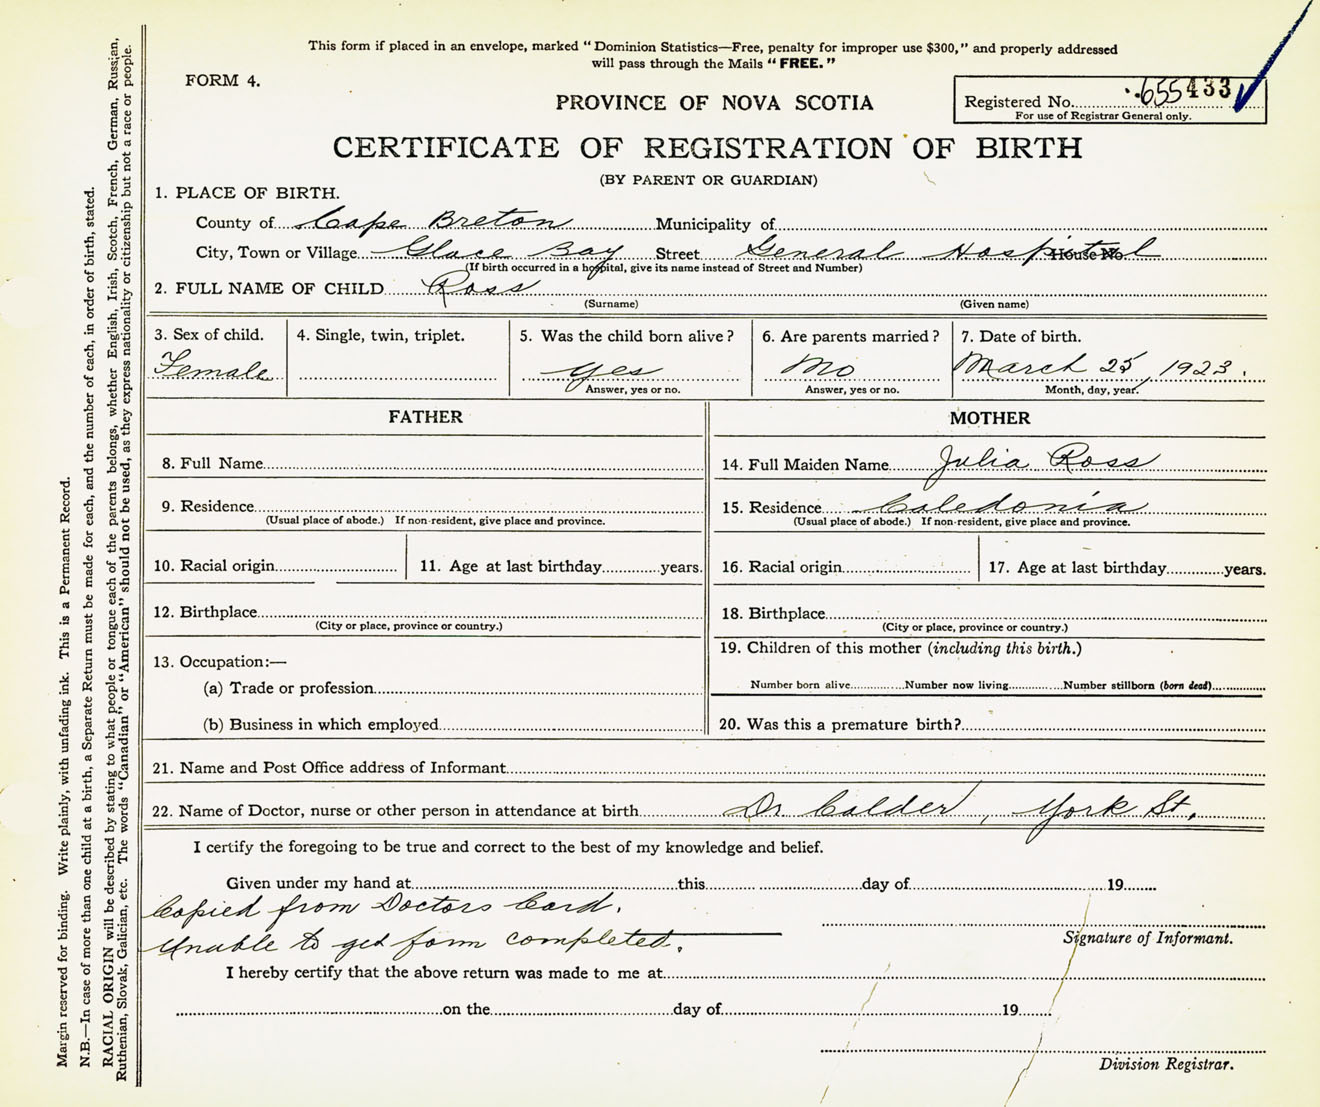 This form if placed in an envelope, marked “Dominion Statistics—Free, penalty for improper use $300,” and properly addressed
will pass through the Mails “FREE.”
FORM 4.
PROVINCE OF NOVA SCOTIA
Registered No. 655433
For use of Registrar General only.
CERTIFICATE OF REGISTRATION OF BIRTH
(BY PARENT OR GUARDIAN)
1. PLACE OF BIRTH.
County of Cape Breton Municipality of
City, Town or Village Glace Bay Street General Hospital House No
(If birth occurred in a hospital, give its name instead of Street and Number)
2. FULL NAME OF CHILD Ross
(Surname) (Given name)
3. Sex of child. 4. Single, twin, triplet. 5. Was the child born alive? 6. Are parents married? 7. Date of birth.
Female yes No March 25, 1923.
Answer, yes or no. Answer, yes or no. Month, day, year.
FATHER MOTHER
8. Full Name 14. Full Maiden Name Julia Ross
9. Residence 15. Residence Caledonia
(Usual place of abode.) If non-resident, give place and province. (Usual place of abode.) If non-resident, give place and province.
10. Racial origin 11. Age at last birthday years. 16. Racial origin 17. Age at last birthday years.
12. Birthplace 18. Birthplace
(City or place, province or country.) (City or place, province or country.)
13. Occupation:— 19. Children of this mother (including this birth.)
(a) Trade or profession Number born alive Number now living Number stillborn (born dead)
(b) Business in which employed 20. Was this a premature birth?
21. Name and Post Office address of Informant
22. Name of Doctor, nurse or other person in attendance at birth Dr Calder, York St.
I certify the foregoing to be true and correct to the best of my knowledge and belief.
Given under my hand at this day of 19
Copied from Doctors Card.
Unable to get form completed.
Signature of Informant.
I hereby certify that the above return was made to me at
on the day of 19
Division Registrar.
Margin reserved for binding. Write plainly, with unfading ink. This is a Permanent Record.
N.B.—In case of more than one child at a birth, a Separate Return must be made for each, and the number of each, in order of birth, stated.
RACIAL ORIGIN will be described by stating to what people or tongue each of the parents belongs, whether English, Irish, Scotch, French, German, Russian,
Ruthenian, Slovak, Galician, etc. The words “Canadian” or “American” should not be used, as they express nationality or citizenship but not a race or people.